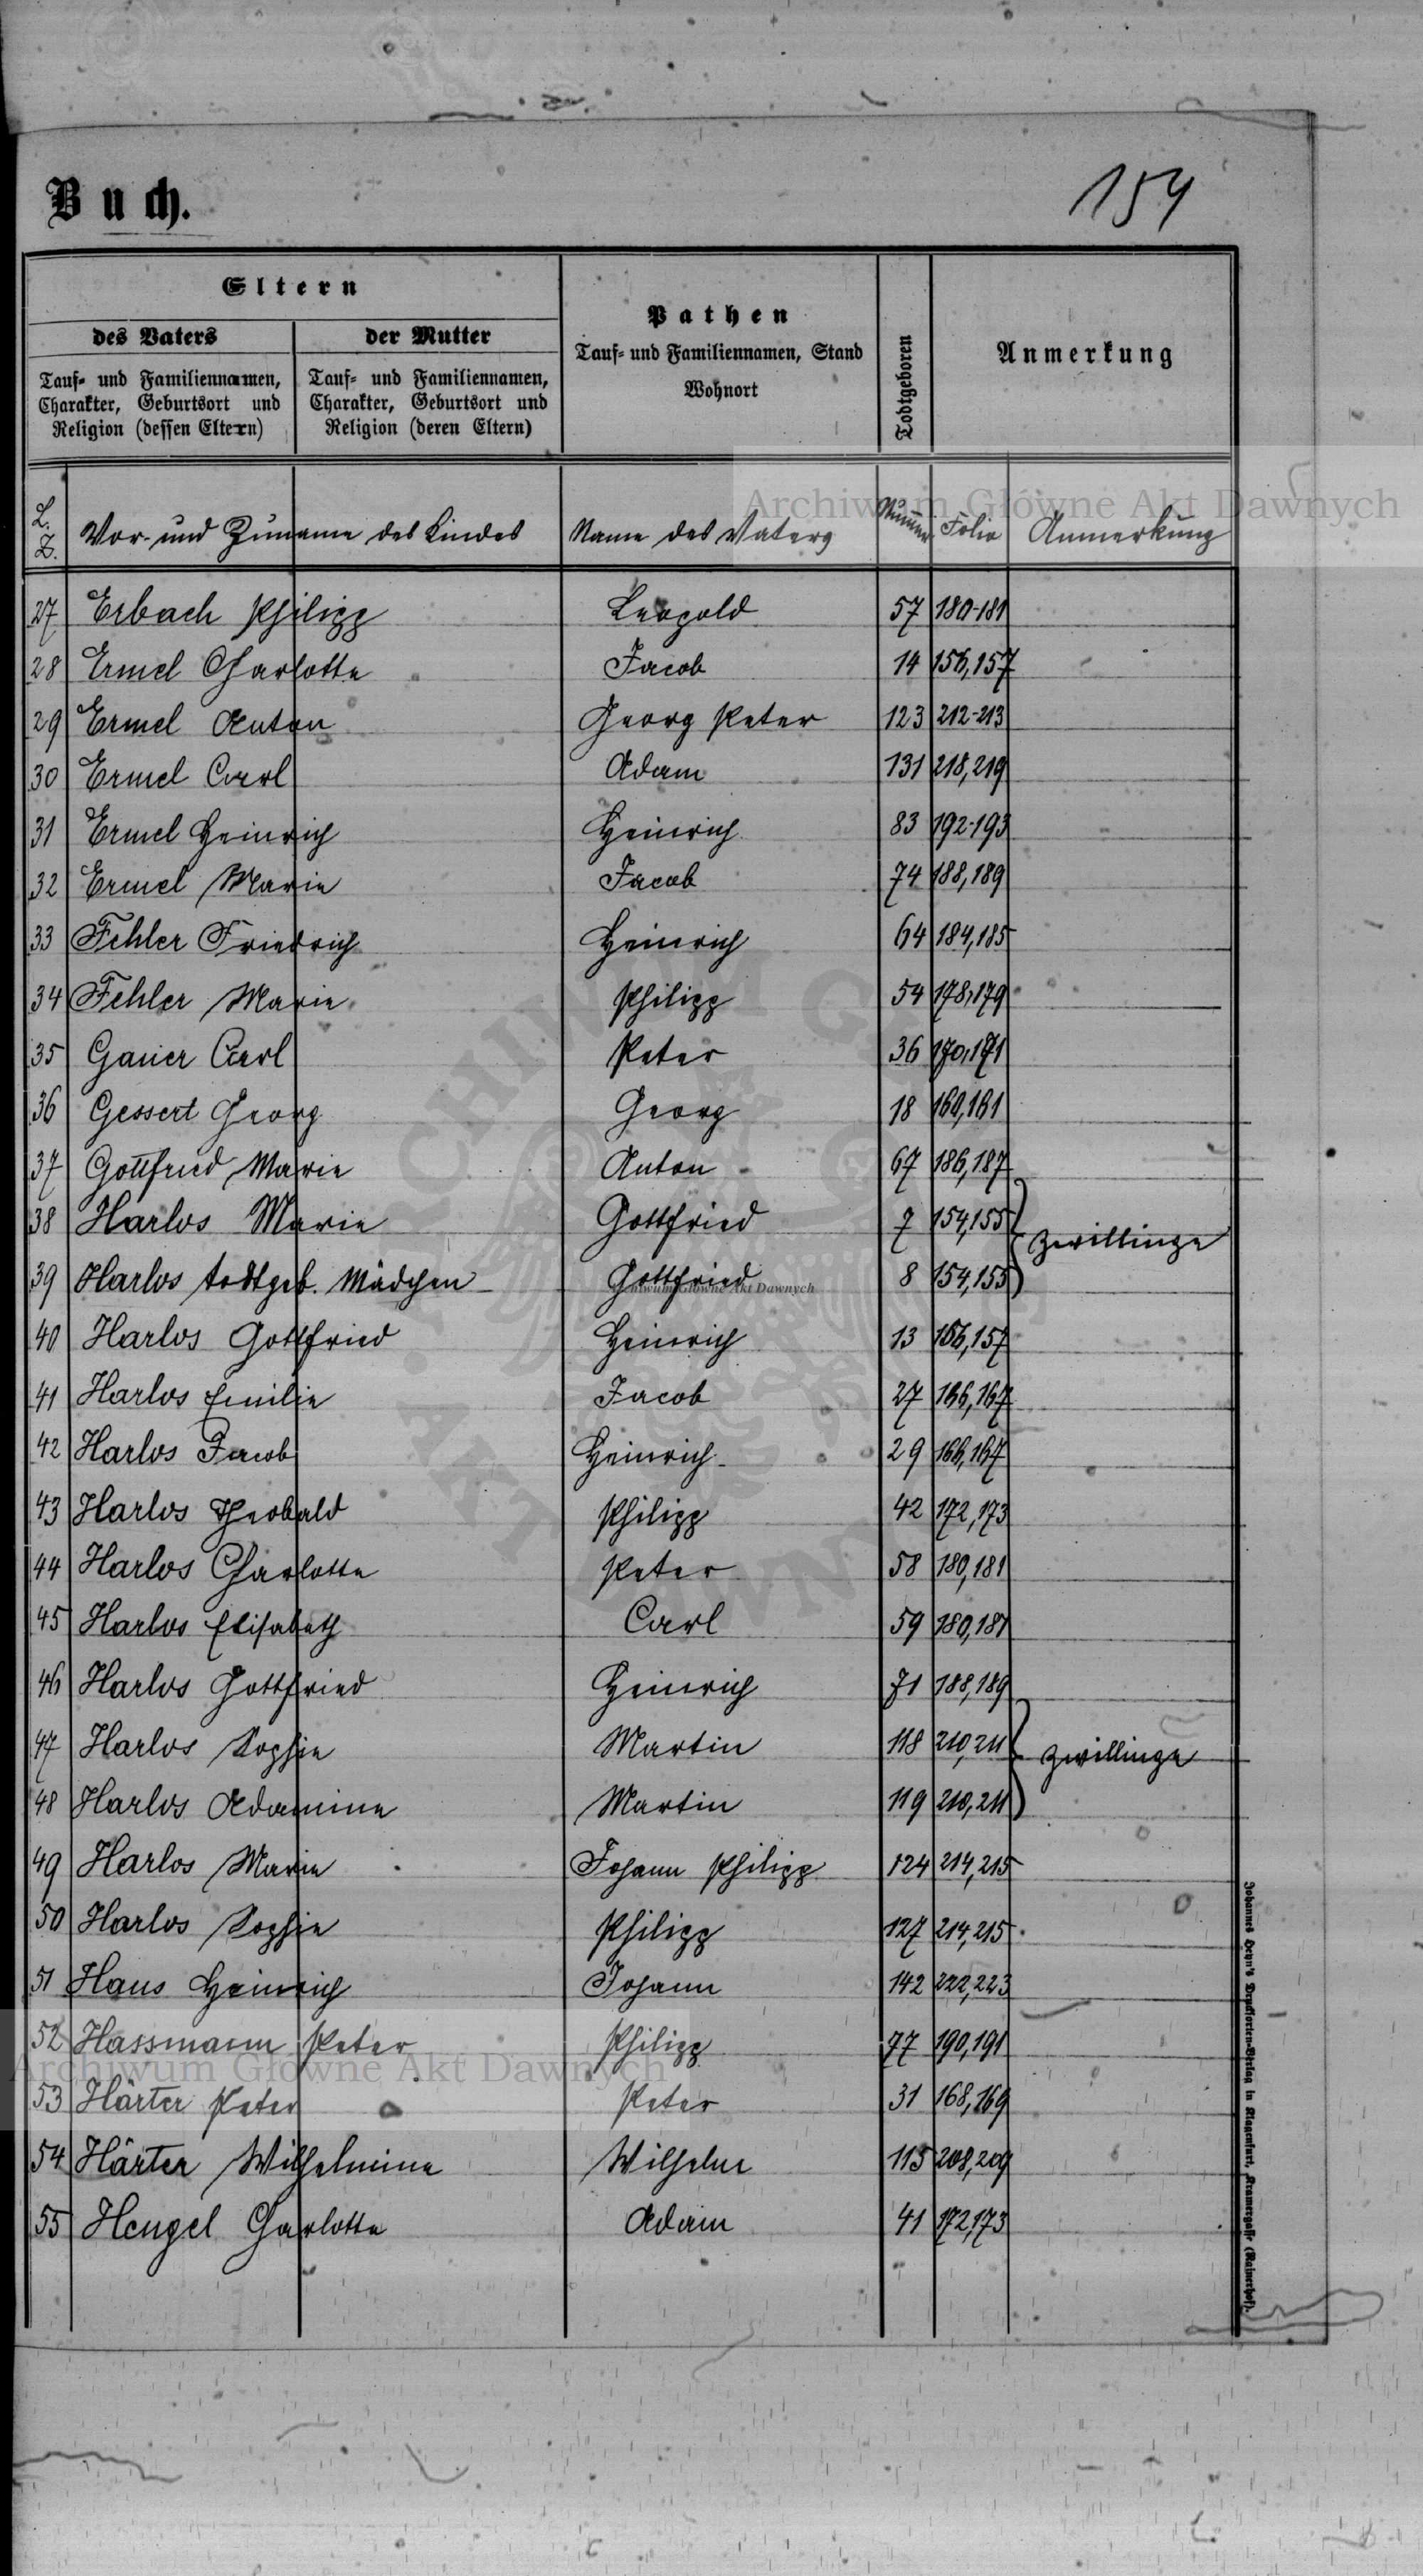 Buch.
154
Eltern
des Vaters
der Mutter
Pathen
Todtgeboren
Anmerkung
Tauf- und Familiennamen,
Charakter, Geburtsort und
Religion (dessen Eltern)
Tauf- und Familiennamen,
Charakter, Geburtsort und
Religion (deren Eltern)
Tauf- und Familiennamen, Stand
Wohnort
Archiwum Główne Akt Dawnych
L. Z. Vor- und Zuname des Kindes Name des Vaters Numer Folio Anmerkung
27 Erbach Philipp Leopold 57 180-181
28 Ermel Charlotte Jacob 14 156,157
29 Ermel Anton Georg Peter 123 212-213
30 Ermel Carl Adam 131 218,219
31 Ermel Heinrich Heinrich 83 192-193
32 Ermel Marie Jacob 74 188,189
33 Fehler Friedrich Heinrich 64 184,185
34 Fehler Marie Philipp 54 178,179
35 Gauer Carl Peter 36 170,171
36 Gessert Georg Georg 18 160,161
37 Gottfried Marie Anton 67 186,187
38 Harlos Marie Gottfried 7 154,155
Zwillinge
39 Harlos todtgeb. Mädchen Gottfried 8 154,155
40 Harlos Gottfried Heinrich 13 156,157
41 Harlos Emilie Jacob 27 166,167
42 Harlos Jacob Heinrich 29 166,167
43 Harlos Theobald Philipp 42 172,173
44 Harlos Charlotte Peter 58 180,181
45 Harlos Elisabeth Carl 59 180,181
46 Harlos Gottfried Heinrich 71 188,189
47 Harlos Sophie Martin 118 210,211 Zwillinge
48 Harlos Adamine Martin 119 210,211
49 Harlos Marie Johann Philipp 124 214,215
50 Harlos Sophie Philipp 127 214,215
51 Haus Heinrich Johann 142 222,223
52 Hassmann Peter Philipp 77 190,191
Archiwum Główne Akt Dawnych
53 Härter Peter Peter 31 168,169
54 Härter Wilhelmine Wilhelm 115 208,209
55 Hengel Charlotte Adam 41 172,173
Johannes Heyn's Drucksorten-Verlag in Klagenfurt, Kramergasse (Rainerhof).